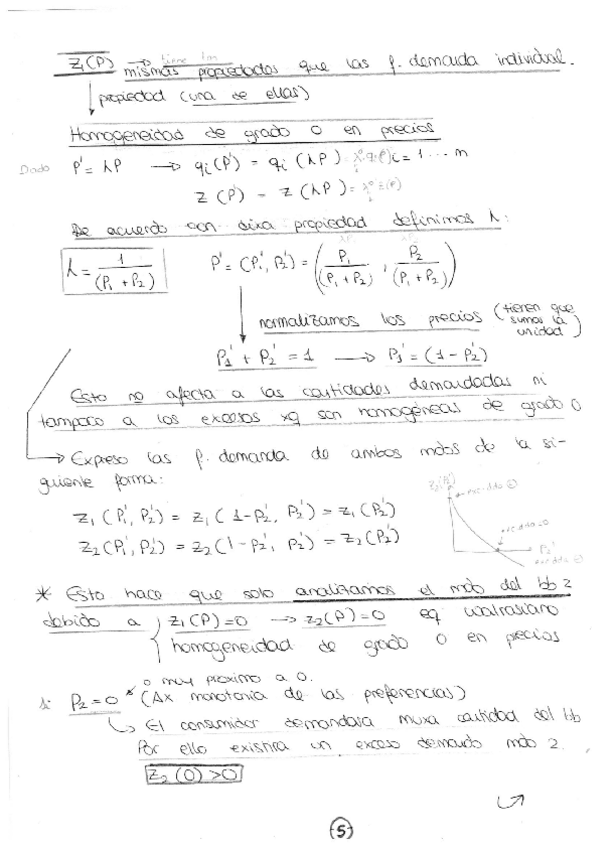 Z₁(P) → tiene las
mismas propiedades que las f. demanda individual.
propiedad (una de ellas)
Homogeneidad de grado 0 en precios
Dado P' = λP → qi(P') = qi(λP) = λ⁰qi(P) i = 1 ... m
Z(P') = Z(λP) = λ⁰Z(P)
De acuerdo con dixa propiedad definimos λ:
λ = 1/(P₁ + P₂) P' = (P₁', P₂') = (P₁/(P₁ + P₂), P₂/(P₁ + P₂))
normalizamos los precios (tienen que sumar la unidad)
P₁' + P₂' = 1 → P₁' = (1 - P₂')
Esto no afecta a las cantidades demandadas ni
tampoco a los excesos xq son homogéneas de grado 0
→ Expreso las f. demanda de ambos mdos de la si-
guiente forma:
Z₁(P₁', P₂') = Z₁(1-P₂', P₂') = Z₁(P₂')
Z₂(P₁', P₂') = Z₂(1-P₂', P₂') = Z₂(P₂')
Z₂(P₂')
exc. ddo ⊕
exc ddo = 0
P₂'
exc ddo ⊖
* Esto hace que solo analizamos el mdo del bb 2
debido a Z₁(P)=0 → Z₂(P)=0 eq walrasiano
homogeneidad de grado 0 en precios
o muy proximo a 0.
Si P₂=0 * (Ax monotonia de las preferencias)
↳ El consumidor demandara muxa cantidad del bb
Por ello existira un exceso demanda mdo 2.
Z₂(0)>0
5